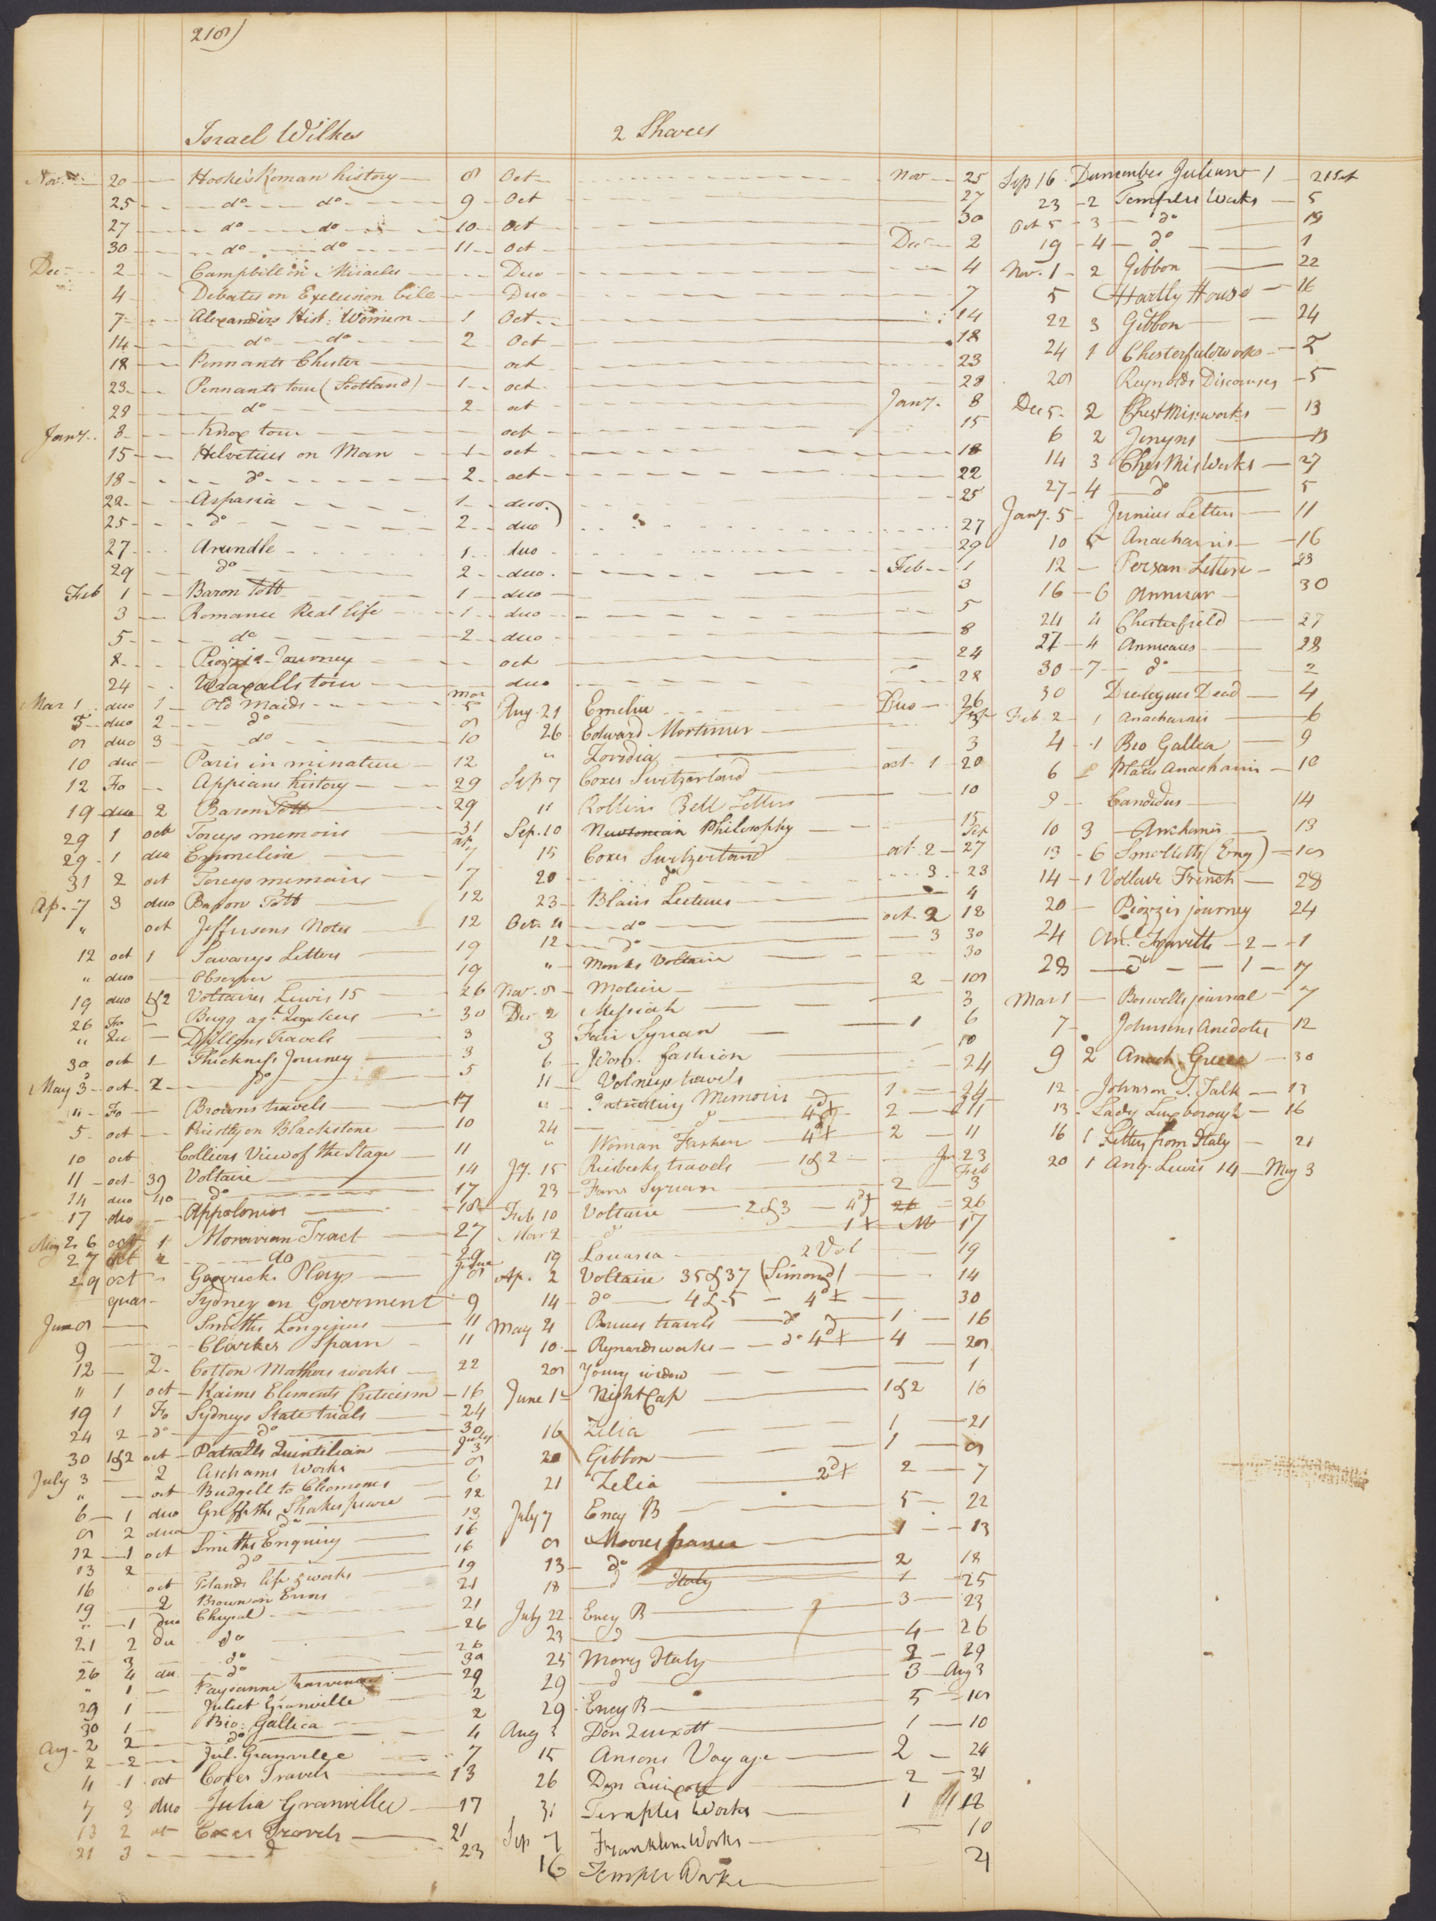 218)
Israel Wilkes 2 Shares
Nov. 20 Hooke's Roman history 8 Oct Nov 25
25 do do 9 Oct 27
27 do do 10 Oct 30
30 do do 11 Oct Dec 2
Dec 2 Campbill on Miracles Duo 4
4 Debates on Exclusion bill Duo 7
7 Alexanders Hist: Women 1 Oct 14
14 do do 2 Oct 18
18 Pennants Chester oct 23
23 Pennants tour (Scotland) 1 oct 28
28 do 2 oct Jany. 8
Jany. 8 Knox tour oct 15
15 Helvetius on Man 1 oct 18
18 do 2 oct 22
22 Aspasia 1 duo 25
25 do 2 duo 27
27 Arundle 1 duo 29
29 do 2 duo Feb 1
Feb 1 Baron Tott 1 duo 3
3 Romance Real life 1 duo 5
5 do 2 duo 8
8 Piozzi's Journey oct 24
24 Wraxalls tour duo 28
Mar 1 duo 1 Old Maids mar 5
5 duo 2 do 8
8 duo 3 do 10
10 duo Paris in minature 12
12 Fo Appians history 29
19 duo 2 Baron Tott 29
29 1 oct Torcys memoirs 31
29 1 duo Emmeline ap. 7
31 2 oct Torcys memoirs 7
Ap. 7 3 duo Baron Tott 12
" oct Jeffersons Notes 12
12 oct 1 Savarys Letters 19
" duo Observer 19
19 duo 1&2 Voltaires Lewis 15 26
26 Fo Bugg agt. Quakers 30
" Travels 3
30 oct 1 Thickness Journey 3
May 3 oct 2 do 5
" Fo Browns travels 17
5 oct Priestly on Blackstone 10
10 oct Colliers View of the Stage 11
11 oct 39 Voltaire 14
14 duo 40 do 17
17 duo Appolonius 18
May 26 oct 1 Moravian Tract 27
27 oct 2 do 29
29 oct Garricks Plays June 8
quar Sydney on Goverment 9
June 8 Smiths Longinus 11
9 Clarkes Spain 11
12 2 Cotton Mathers works 22
" 1 oct Kaims Elements Criticism 16
19 1 Fo Sydneys State trials 24
24 2 do do 30
30 1&2 oct Patsalls Quintilian July 3
July 3 2 Aschams Works 8
" oct Budgell to Cleomenes 6
6 1 duo Griffiths Shakespeare 12
8 2 duo do 13
12 1 oct Smiths Enquiry 16
13 2 do 16
16 oct Tolands life & works 19
19 2 Brown on Errors 21
" 1 duo Chrysal 21
21 2 du do 26
" 3 do 26
26 4 du do 30
" 1 Paysanne 29
29 1 Juliet Granville 2
30 1 Bio: Gallica 2
Aug. 2 2 do 4
2 2 Jul. Granville 7
4 1 oct Coxes Travels 13
7 3 duo Julia Granville 17
13 2 oct Coxes Travels 21
21 3 do 23
Aug. 21 Emeline Duo 26
26 Edward Mortimer
" Zoridia 3
Sep 7 Coxes Switzerland oct. 1 20
11 Rollins Bell Letters 10
Sep. 10 Newtonian Philosophy 15
15 Coxes Switzerland oct. 2 27
20 do 3 23
23 Blairs Lectures 4
Oct. 4 do oct 2 18
12 do 3 30
" Monks Voltaire 30
Nov. 8 Moliere 2 18
Dec 2 Messiah 3
3 Fair Syrian 1 6
6 Worl. fashion 10
11 Volneys travels 24
" Interesting Memoirs 1 24
24 2
" Woman Fashon 2 11
Jy. 15 Riesbecks travels 1&2 Ja 23
23 Fair Syrian 2 Feb 3
Feb 10 Voltaire 2&3 26
Mar 2 17
19 Louisa 2 Vol 19
Ap. 2 Voltaire 35&37 (Simond) 14
14 do 4&5 30
May 4 Bruces travels 1 16
10 Reynards works do 4 28
28 Young widow 1
June 1 Night Cap 1&2 16
16 Zelia 1 21
20 Gibbon 1 8
21 Zelia 2 7
July 7 Ency B 5 22
8 Moores france 1 13
13 do 2 18
18 do Italy 1 25
July 22 Ency B 3 23
23 do 4 26
25 Mores Italy 2 29
29 do 3 Aug 3
29 Ency B 5 18
Aug 3 Don Quixott 1 10
15 Ansons Voyage 2 24
26 Don Quixote 2 31
31 Temples Works 1 18
Sep 7 Franklins Works 10
16 Temples Works 21
Sep 16 Julian 1 21 Sept
23 2 Temples Works 5
Oct 5 3 do 19
19 4 do 1
Nov. 1 2 Gibbon 22
5 Hartly House 16
22 3 Gibbon 24
24 1 Chesterfields works 5
28 Reynolds Discourses 5
Dec 5 2 Chest Mis works 13
6 2 Jenyns 13
14 3 Ches Mis Works 27
27 4 do 5
Jany. 5 Junius Letters 11
10 5 Anacharsis 16
12 Persan Letters 23
16 6 30
24 4 Chesterfield 27
27 4 28
30 7 do 2
30 Dialogues Dead 4
Feb. 2 1 Anacharsis 6
4 1 Bio Gallica 9
6 Plates Anacharsis 10
9 Candidus 14
10 3 Anacharsis 13
13 6 Smolletts (Eng) 18
14 1 Voltaire French 28
20 Piozzis journey 24
24 2 1
28 do 1 7
Mar 1 Boswells journal 7
7 Johnsons Anecdotes 12
9 2 Anach Greece 30
12 Johnson T. Talk 13
13 Lady Luxborough 16
16 1 Letters from Italy 21
20 1 Anq. Lewis 14 May 3